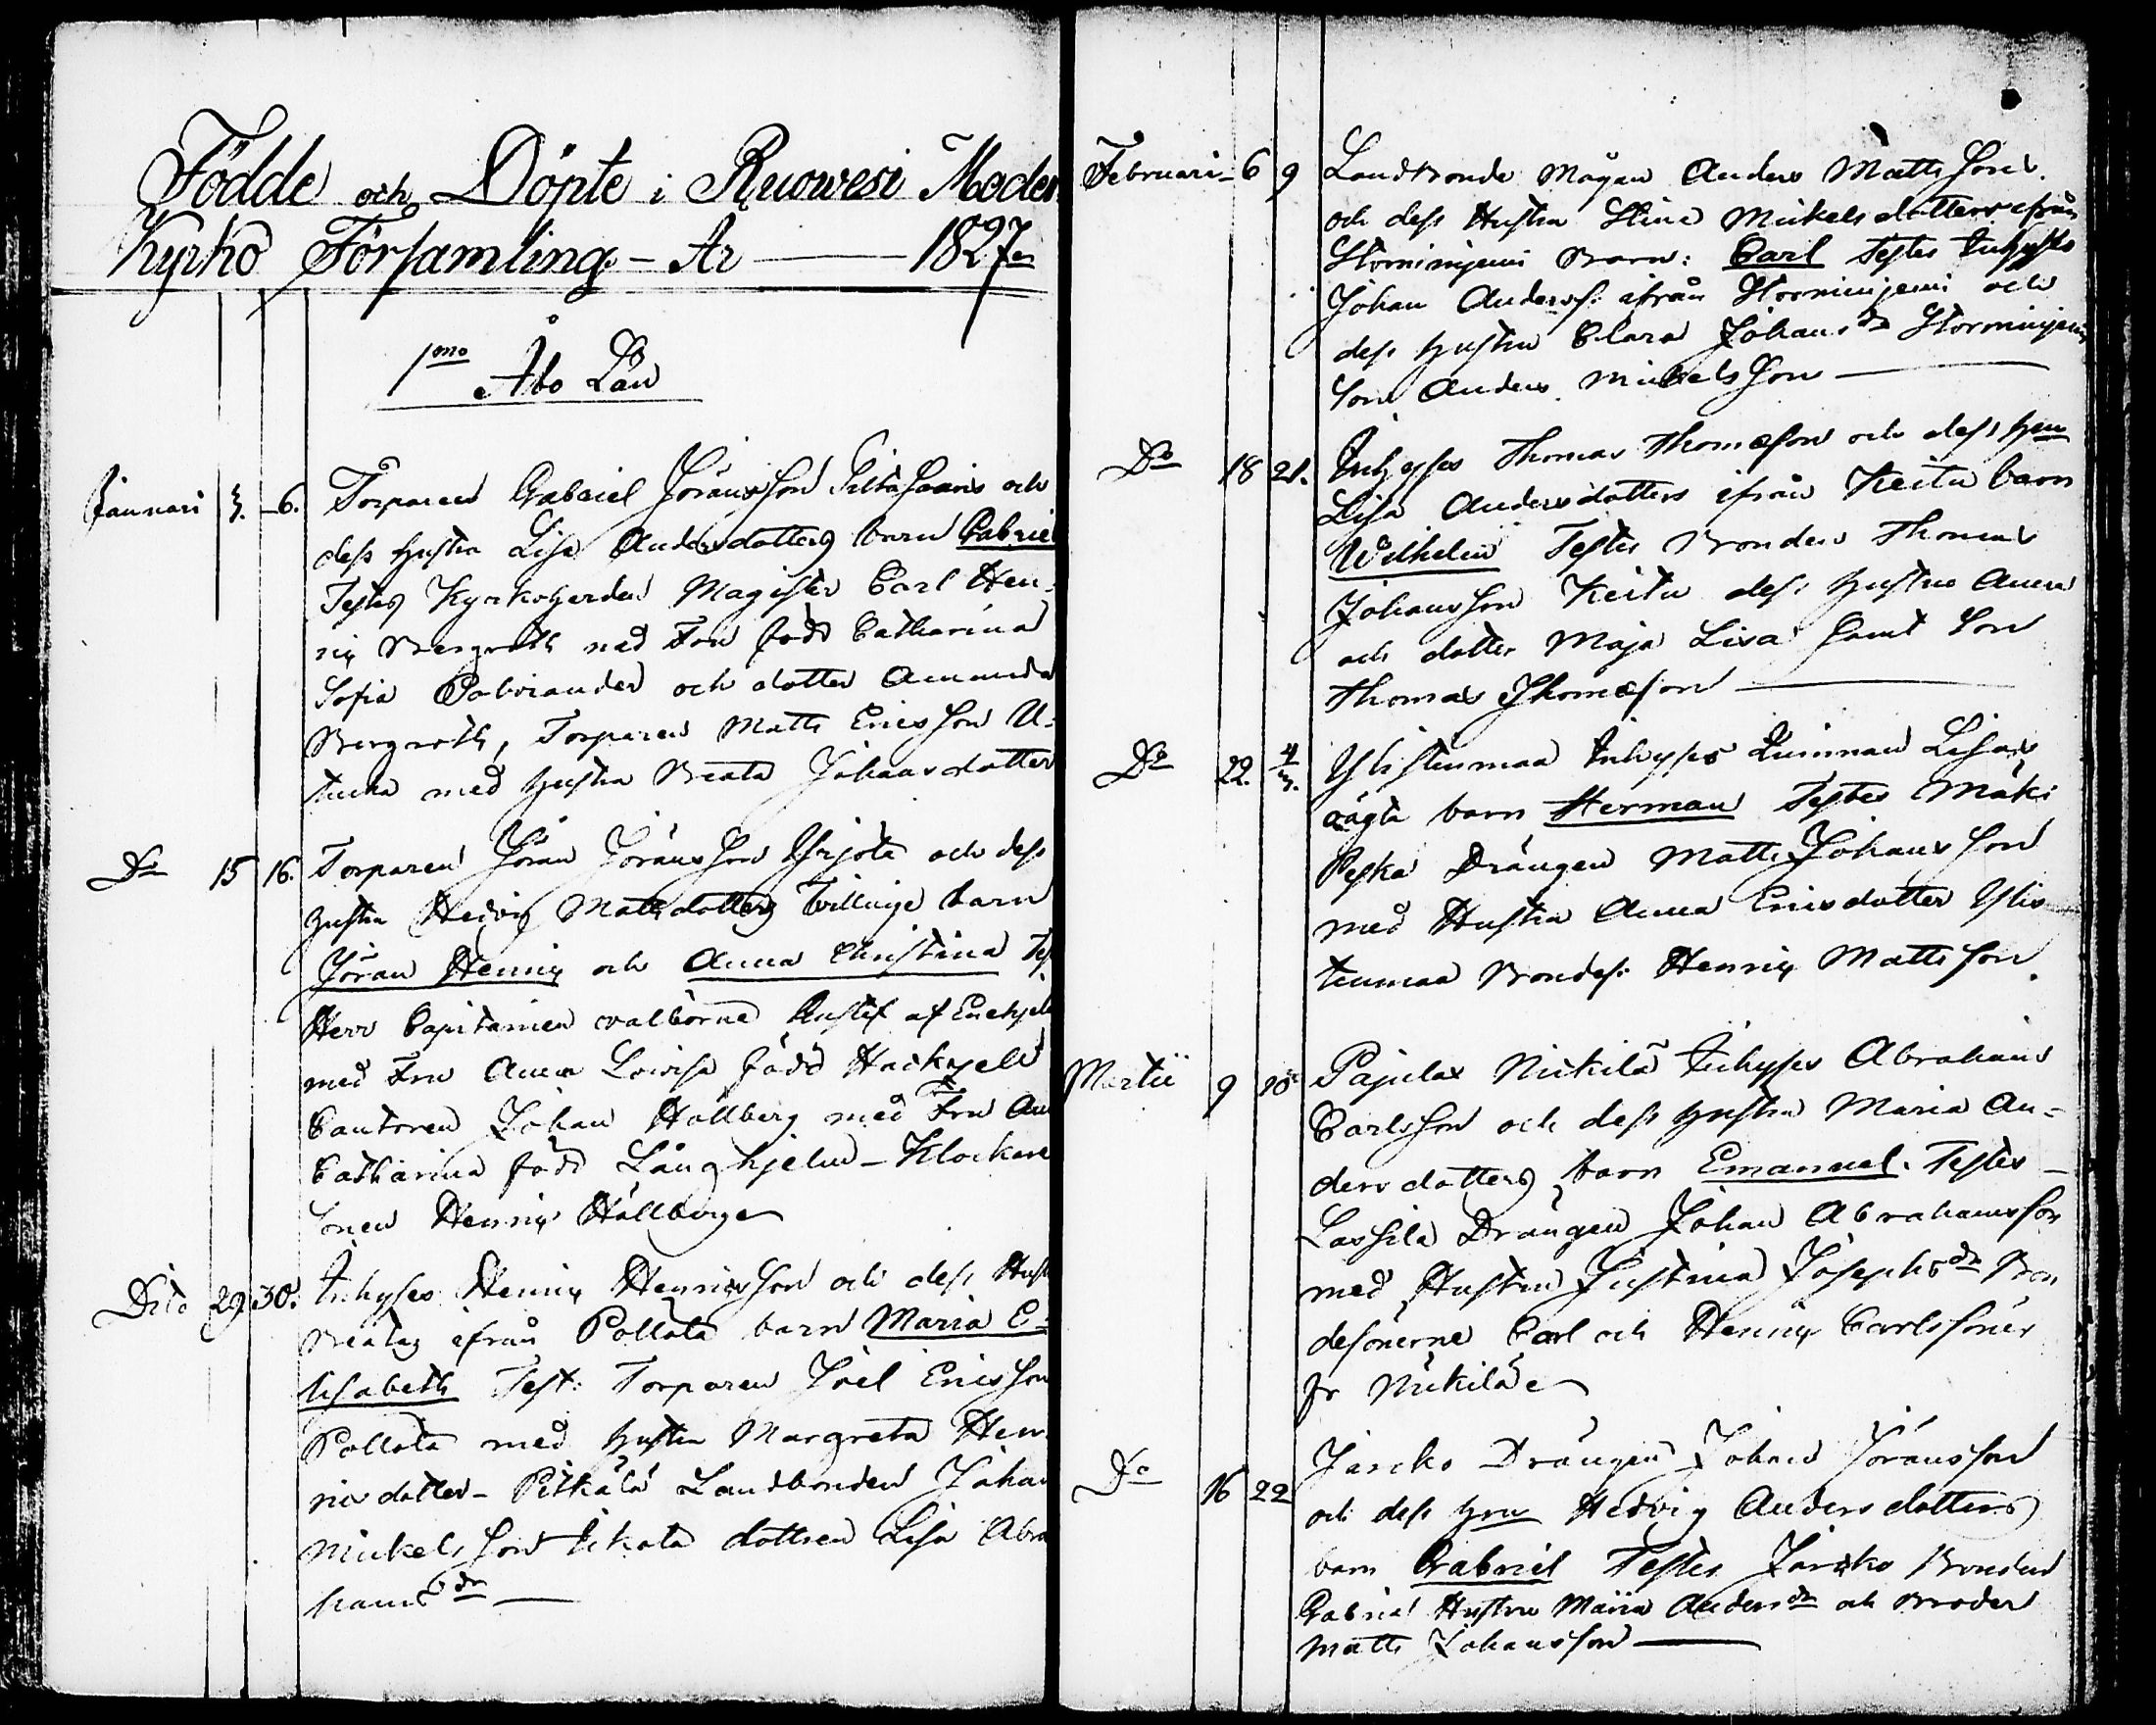 Födde och Döpte i Ruowesi Moder
Kyrko Församling - År 1827
1mo Åbo Län
Januari 3. 6. Torparen Gabriel Jöransson och
dess hustru Lisa Andersdotters barn Gabriel
Testes Kyrkoherden Magister Carl Hen=
ric Bergroth med Fru född Catharina
Sofia och dotter Amanda
Bergroth, Torparen Matts Ericsson U=
tucka med hustru Beata Johansdotter
Do 15 16. Torparen Jöran Jöransson Yrjölä och dess
hustru Hedvig Mattsdotters Tvillinge barn
Jöran Henric och Anna Christina Tes
Herr Capitainen välborne Gustaf af Enehjelm
med Fru Anna Lovisa född Hackzell
Cantoren Johan Hällberg med Fru An
Catharina född Långhjelm - Klockare
sonen Henric Hällberg
Dito 29 30. Inhyses Henric Henricsson och dess Hust
Beatas ifrån Pollata barn Maria E=
lisabeth Test: Torparen Joel Ericsson
Pollata med hustru Margreta Hen=
ricsdotter - Pitkälä Landbonden Johan
Mickelsson dottren Lisa Abra
hamsdr
Februari 6 9 Landbonde Mågen Anders Mattssons
och dess Hustru Stina Mickelsdotters ifrån
Storminjemi Barn: Carl Testes Inhyses
Johan Anderss: ifrån Storminjemi och
dess hustru Clara Johansdr Storminjemi
Son Anders Mickelsson
Do 18 21. Inhyses Thomas Thomasson och dess Hu
Lisa Andersdotters ifrån Keitu barn
Wilhelm Testes Bonden Thomas
Johansson Keitu dess hustru Anna
och dotter Maja Lisa samt Son
Thomas Thomasson
Do 22. 4/3. Ylistenmaa Inhyses Qvinnan Lisas
oägta barn Herman Testes Mäki
Peska Drängen Matts Johansson
med Hustru Anna Ericsdotter Ylis
tenmaa Bondes: Henric Mattsson.
Martii 9 10 Pajulax Nickilä Inhyses Abraham
Carlsson och dess hustru Maria An=
dersdotters barn Emanuel. Testes
Lassila Drängen Johan Abrahamsson
med Hustru Justina Josephsdr Bon
desönerne Carl och Henric Carlssöner
fr Nickilä
Do 16 22 Jäscko Drängen Johan Jöransson
och dess Hru Hedvig Andersdotters
barn Gabriel Testes Jäscko Bonden
Gabriel Hustru Maria Andersdr och Broder
Matts Johansson